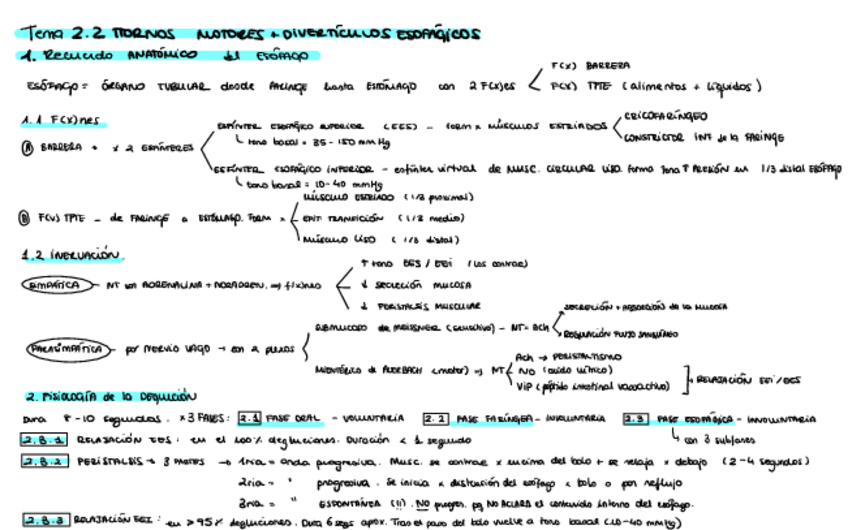 Tema 2.2 TTORNOS MOTORES + DIVERTÍCULOS ESOFÁGICOS
1. Recuerdo ANATÓMICO del ESÓFAGO
ESÓFAGO = ÓRGANO TUBULAR desde FARINGE hasta ESTÓMAGO con 2 F(x)es
F(x) BARRERA
F(x) TPTE (alimentos + líquidos)
1.1 F(x)nes
A BARRERA → x 2 ESFÍNTERES
ESFÍNTER ESOFÁGICO SUPERIOR (EES) - form x MÚSCULOS ESTRIADOS
CRICOFARÍNGEO
CONSTRICTOR INF de la FARINGE
tono basal = 35 - 150 mmHg
ESFÍNTER ESOFÁGICO INFERIOR - esfínter virtual de MUSC. CIRCULAR LISO. forma zona ↑ PRESIÓN en 1/3 distal ESÓFAGO
tono basal = 10-40 mmHg
B F(x) TPTE - de FARINGE a ESTÓMAGO. Form x
MÚSCULO ESTRIADO (1/3 proximal)
EPIT TRANSICIÓN (1/3 medio)
MÚSCULO LISO (1/3 distal)
1.2 INERVACIÓN.
SIMPÁTICA - NT son ADRENALINA + NORADREN. ⇒
↑ tono EES / EEI (los contrae)
↓ SECRECIÓN MUCOSA
↓ PERISTALSIS MUSCULAR
PARASIMPÁTICA - por NERVIO VAGO → con 2 plexos
SUBMUCOSO de MEISSNER (sensitivo) - NT = ACh
SECRECIÓN + ABSORCIÓN de la MUCOSA
REGULACIÓN FLUJO SANGUÍNEO
MIENTÉRICO de AUERBACH (motor) ⇒ NT
Ach → PERISTALTISMO
NO (óxido nítrico)
VIP (péptido intestinal vasoactivo)
RELAJACIÓN EEI / EES
2. Fisiología de la DEGLUCIÓN
Dura 8-10 segundos. x 3 FASES: 2.1 FASE ORAL - VOLUNTARIA 2.2 FASE FARÍNGEA - INVOLUNTARIA 2.3 FASE ESOFÁGICA - INVOLUNTARIA
con 3 subfases
2.3.1 RELAJACIÓN EES: en el 100% degluciones. Duración < 1 segundo
2.3.2 PERISTALSIS → 3 PARTES → 1ria = onda progresiva. Musc. se contrae x encima del bolo + se relaja x debajo (2-4 segundos)
2ria = " progresiva. Se inicia x distensión del esófago x bolo o por reflujo
3ria = " ESPONTÁNEA (!!). NO progres. pq NO ACLARA el contenido interno del esófago.
2.3.3 RELAJACIÓN EEI: en >95% degluciones. Dura 6 segs aprox. Tras el paso del bolo vuelve a tono basal (10-40 mmHg)